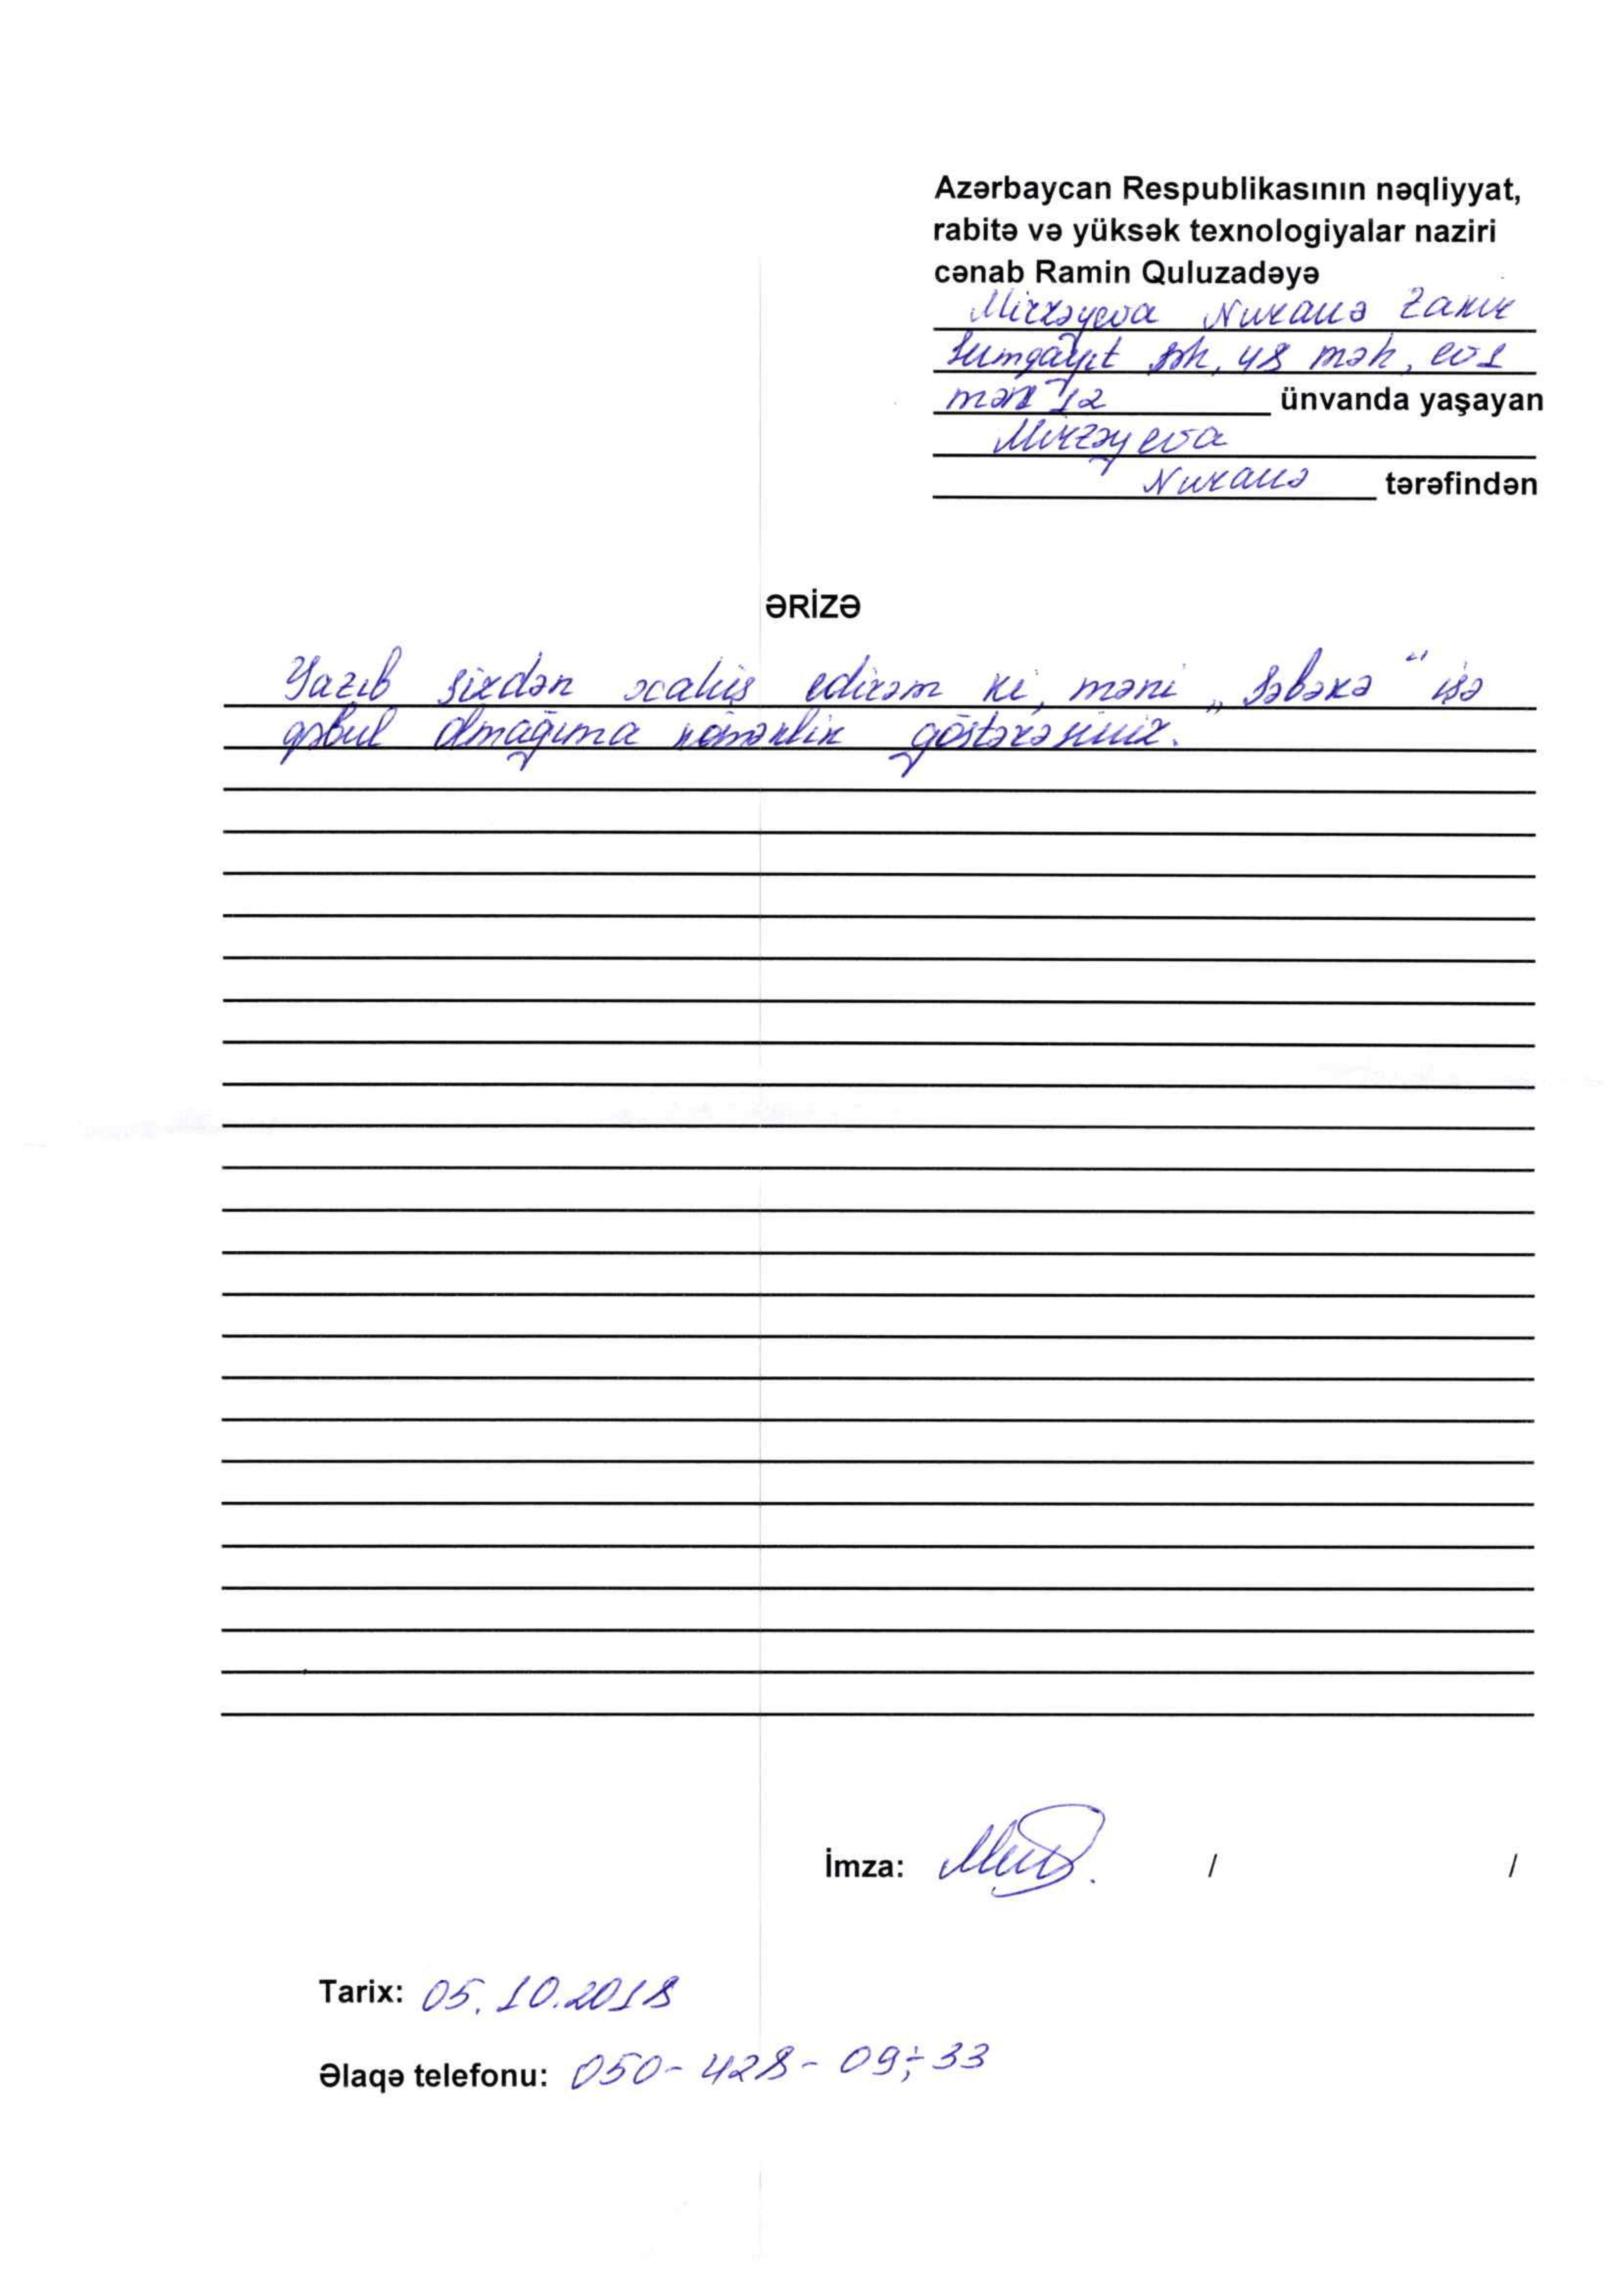 Azərbaycan Respublikasının nəqliyyat,
rabitə və yüksək texnologiyalar naziri
cənab Ramin Quluzadəyə
Mirzəyeva Nuranə Zakir
Sumqayıt şəh, 48 məh, ev 1
mən 12 ünvanda yaşayan
Mirzəyeva
Nuranə tərəfindən
ƏRİZƏ
Yazıb sizdən xahiş edirəm ki, məni „Şəbəkə“ işə
qəbul olmağıma köməklik göstərəsiniz.
İmza: / /
Tarix: 05.10.2018
Əlaqə telefonu: 050-428-09-33